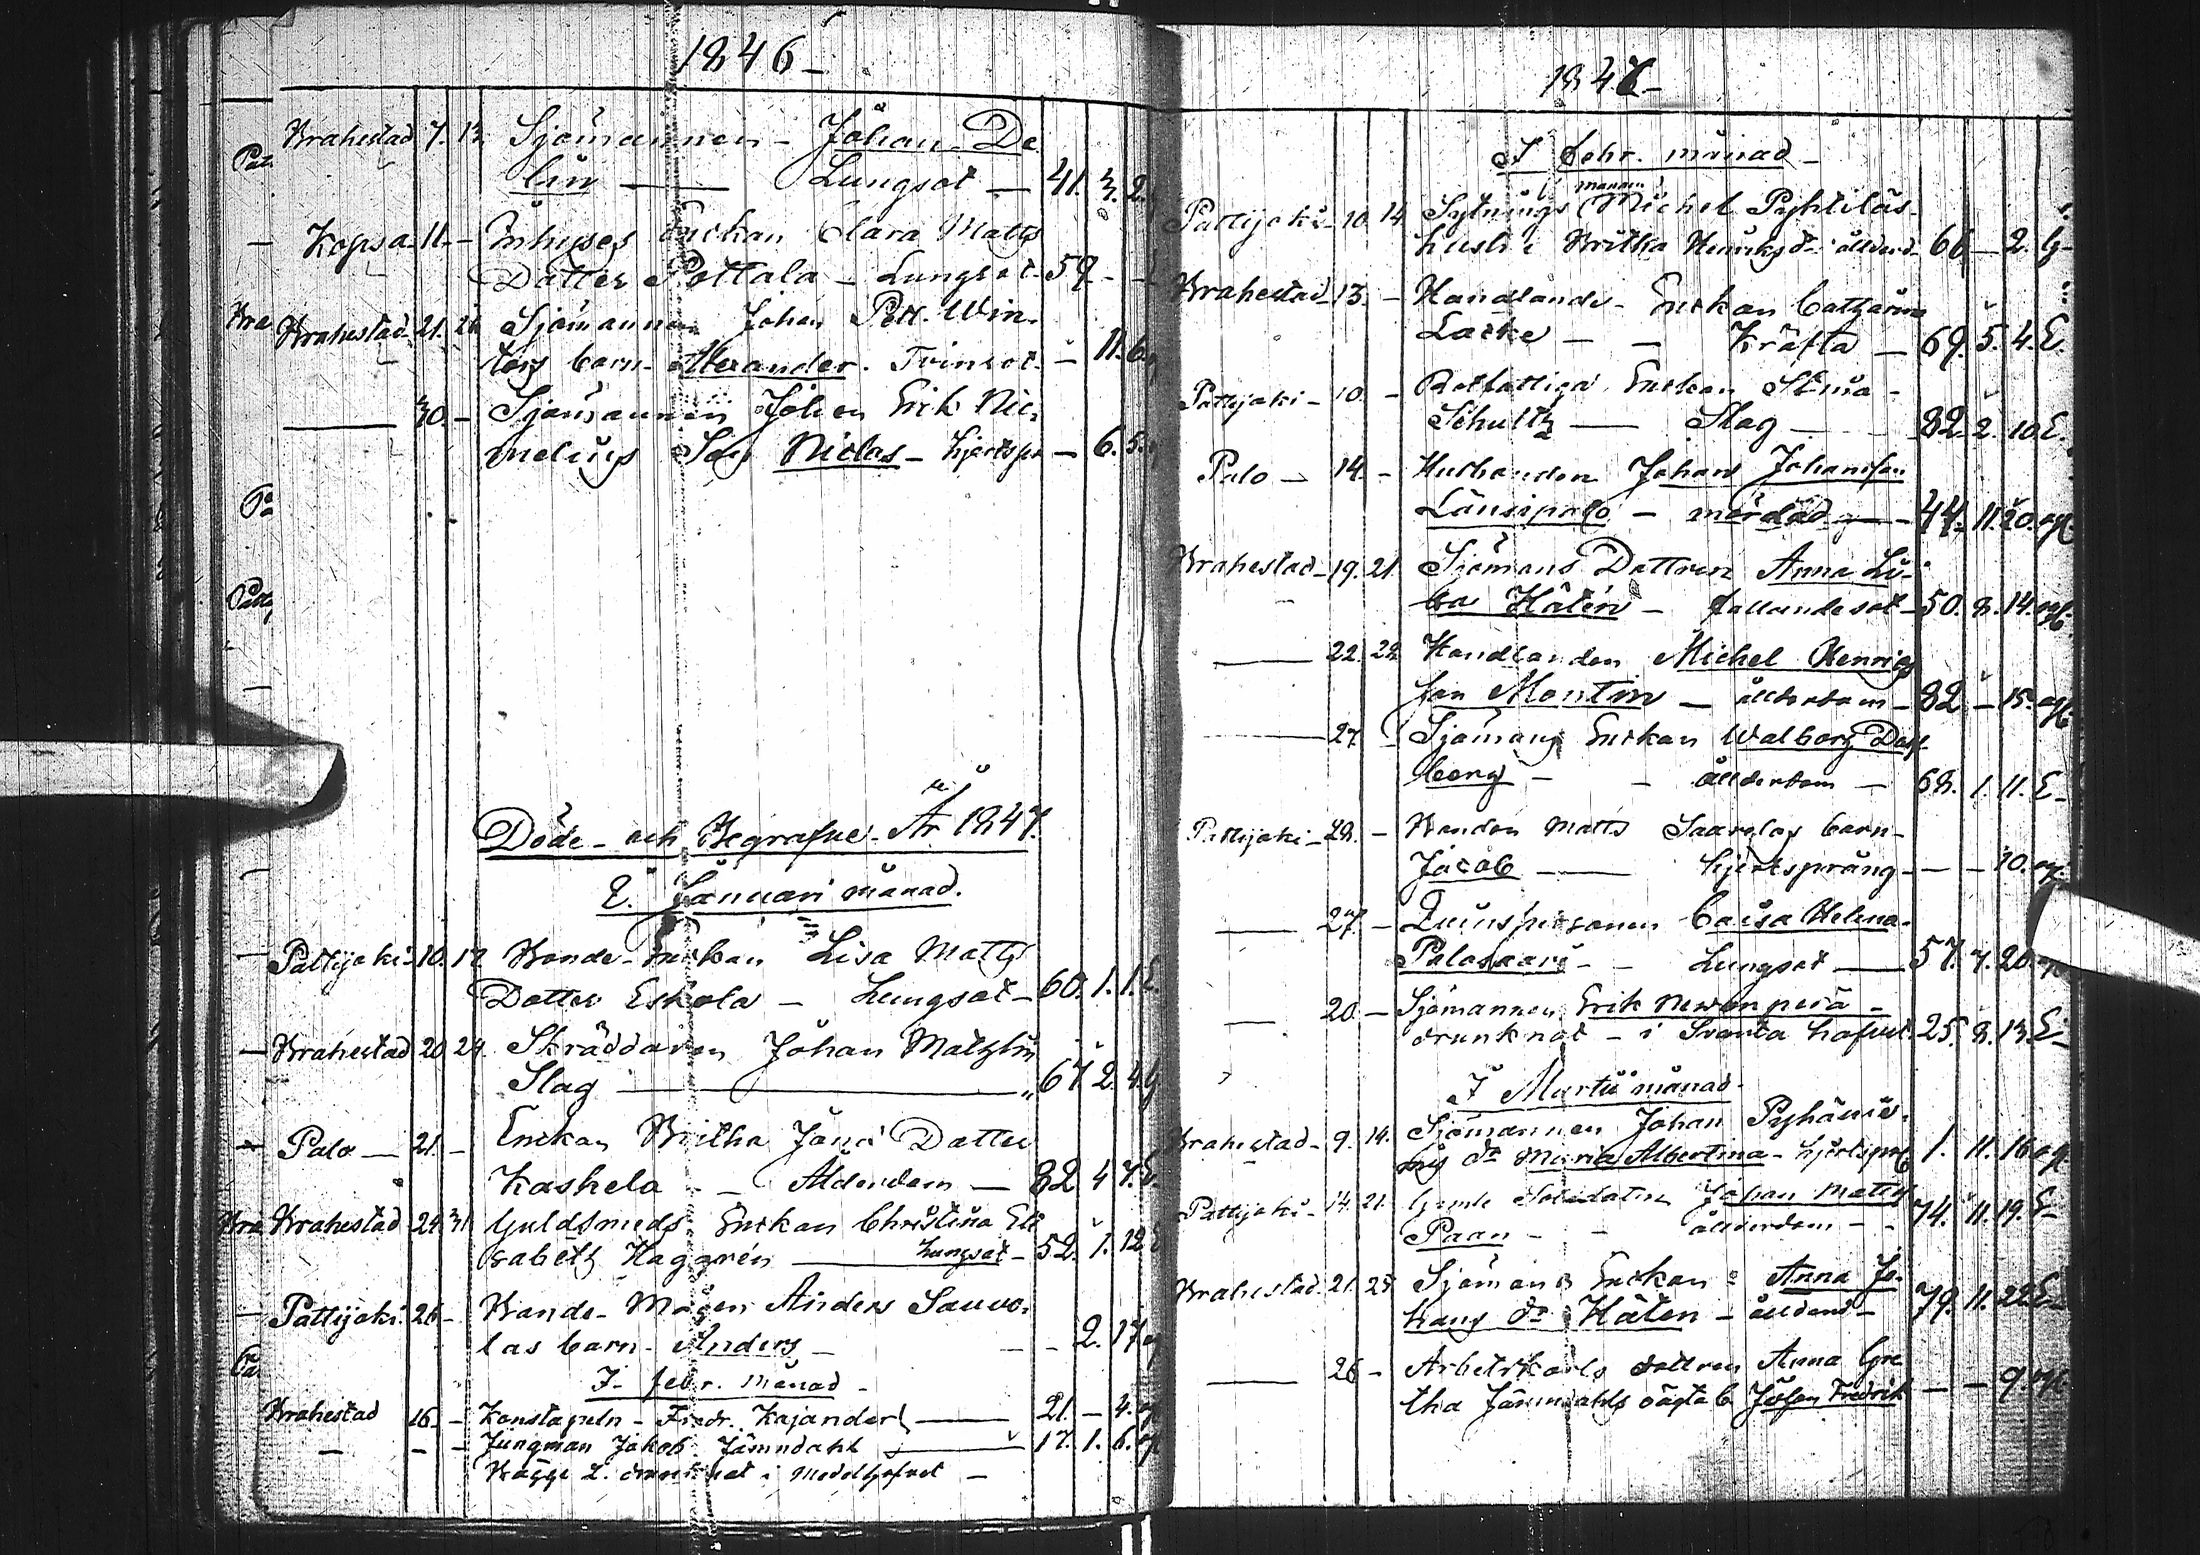 1846
Brahestad 7. 13 Sjömannen Johan De
lin — Lungsot — 41. 3. 2
— Kopsa 11. — Inhyses Enkan Clara Matts
Dotter Pottala — Lungsot 59 - -
Brahestad 21. 26 Sjömannen Johan Pett. Win-
ters barn Alexander. Tvinsot — 11. 6
— 30 — Sjömannen Johan Erik Nic
melius Son Niclas — hjertspr — 6. 5.
Döde och Begrafne År 1847.
I Januari månad.
Pattijoki 10. 17 Bonde-Enkan Lisa Matts
Dotter Eskola — Lungsot — 60. 1. 1. E
— Brahestad 20 24. Skräddaren Johan Matzlin
Slag — 67 2. 4. G
Palo — 21. — Enkan Britha Jans Dotter
Kaskela — Ålderdom — 82 4 7. E
Brahestad 24. 31 Guldsmeds Enkan Christina Eli
sabeth Haggrén — Lungsot — 52. 1. 12 E
— Pattijoki 26 — Bonde-Mågen Anders Sauvo-
las barn Anders — — 2. 17 og
I febr. månad
Brahestad 16. — Konstapeln Fredr. Kajander — 21. — 4. og
— — — Jungman Jakob Jämndahl — 17. 1. 6. og
Bägge 2. drunknat i Medelhafvet —
1847
I febr. månad
Pattijoki 10. 14 Sytnings mannen Michel Pyhtiläs
hustru Britha Henriksdr ålderd 66 — 2. G
Brahestad 13. — Handlande Enkan Catharina
Lacke — — Kräfta — 69. 5. 4. E.
Pattijoki — 10. — Rotfattiga Enkan Stina
Schultz — Slag — 82. 2. 10. E.
Palo — 14. — Husbonden Johan Johansson
Länsipalo — mördad — 44. 11. 20. ogf
Brahestad — 19. 21. Sjömans Dottren Anna Li-
sa Hätén — fallandesot — 50. 8. 14. ogf
— 22. 22 Handlanden Michel Henrics
son Montin — ålderdom — 82 — 15. ogf
— 27 — Sjömans Enkan Walborg Dahl
berg — — ålderdom — 68. 1. 11. E
Pattijoki — 28. — Bonden Matts Saarelas barn
Jacob — hjertsprång — — — 10. og
— 27. — Qvinspersonen Caisa Helena
Palosaari — — Lungsot — 57. 7. 20. og
— 20. — Sjömannen Erik Newanperä
drunknat — i Svarta hafvet 25. 8. 13. E
I Martii månad
Brahestad — 9. 14. Sjömannen Johan Pyhänie-
mis dr Maria Albertina — hjertspr 1. 11. 16 og
Pattijoki — 14. 21. Gamle Soldaten Johan Matts
Paan — ålderdom — 74. 11. 19. E
Brahestad 21. 25 Sjömans Enkan Anna Jo-
hans dr Hätén — ålderd — 79. 11. 22 E
— 26 — Arbetskarls dottren Anna Gre
tha Jämndahls oägta b Johan Fredrik — — 9. ogf